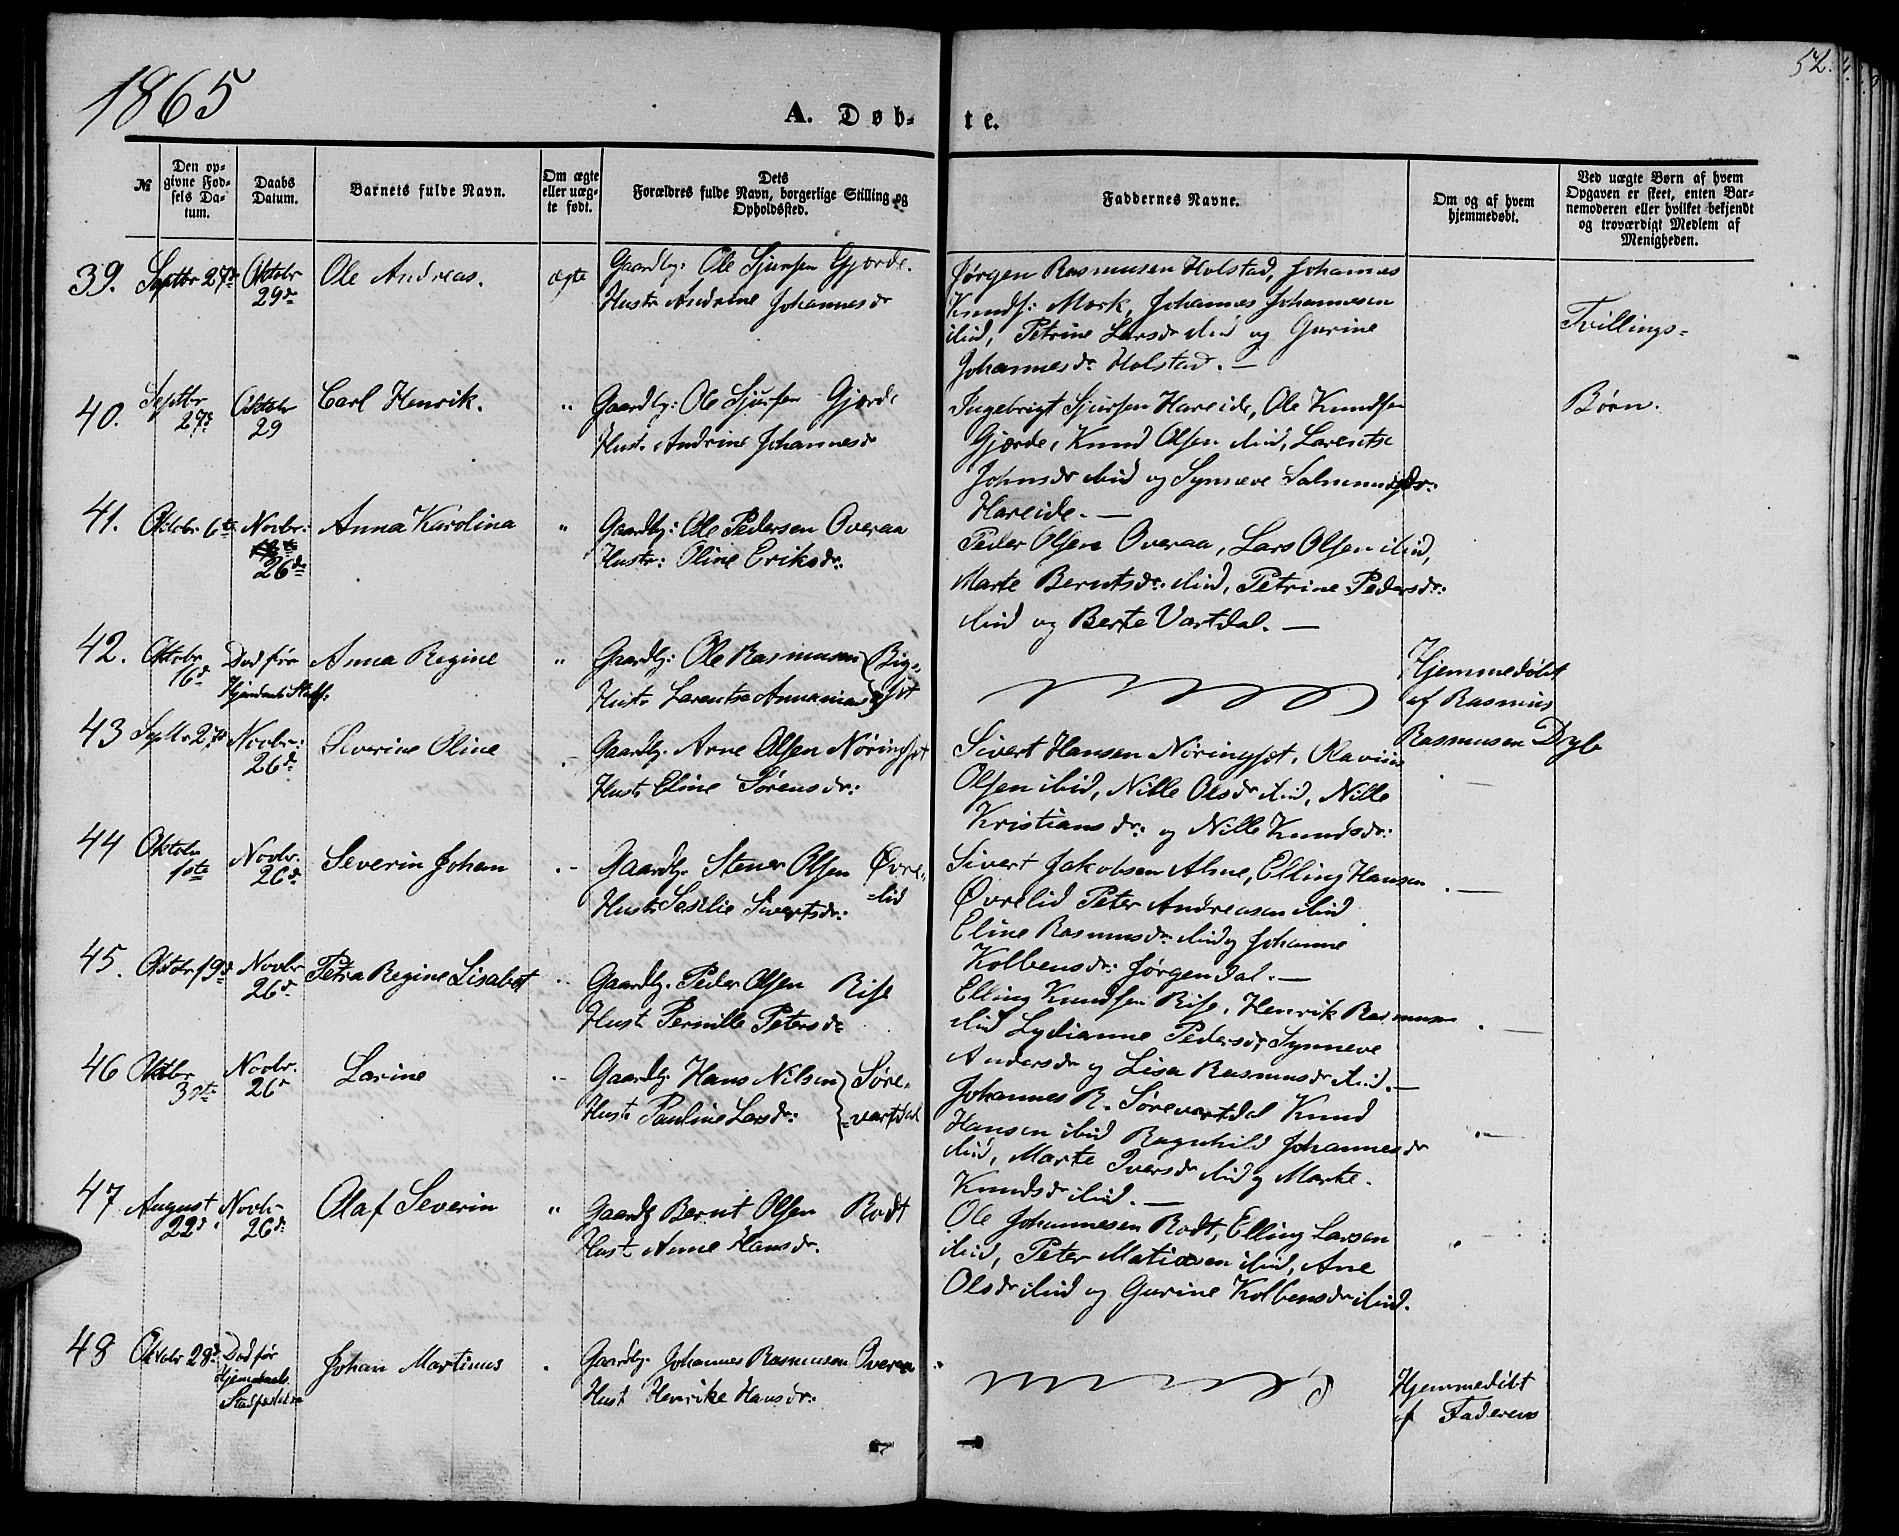 1865
52.
A. Døb-
te.
№
Den op-
givne Fød-
sels Da-
tum.
Daabs
Datum.
Barnets fulde Navn.
Om ægte
eller uæg-
te født.
Dets
Forældres fulde Navn, borgerlige Stilling og
Opholdssted.
Faddernes Navne.
Om og af hvem
hjemmedøbt.
Ved uægte Børn af hvem
Opgaven er skeet, enten Bar-
nemoderen eller hvilket bekjendt
og troværdigt Medlem af
Menigheden.
39.
Septbr 27de
Oktobr
29de
Ole Andreas.
ægte
Gaardbr: Ole Sjursen Gjørde.
Hustr Andrine Johannesdr
Jørgen Rasmusen Holstad, Johannes
Knuds: Mork, Johannes Johannesen
ibid, Petrine Larsdr ibid og Gurine
Johannesdr Holstad. —
Tvillings=
40.
Septbr
27de
Oktobr
29
Carl Henrik.
"
Gaardbr: Ole Sjursen Gjørde
Hustr. Andrine Johannesdr
Ingebrigt Sjursen Hareide, Ole Knudsen
Gjørde, Knud Olsen ibid, Larentse
Johnsdr ibid og Synneve Salmundsdr:
Hareide. —
Børn.
41.
Oktobr 6te
Novbr:
26de
Anna Karolina
"
Gaardbr: Ole Pedersen Overaa
Hustr: Oline Eriksdr:
Peder Olsen Overaa, Lars Olsen ibid,
Marte Berntsdr: ibid, Petrine Pedersdr:
ibid og Berte Vartdal. —
42.
Oktobr
16de
Død før
Anna Regine
"
Gaardbr: Ole Rasmusen
Hustr Larentse
Hjemmedøbt
af Rasmus
Rasmusen Dryb
43
Septbr 27de
Novbr:
26de
Severine Oline
Gaardbr. Arne Olsen Nøringset
Hustr Eline Sørensdr:
Sivert Hansen Nøringset,
Olsen ibid, Nille Olsdr ibid, Nille
Kristiansdr: og Nille Knudsdr:
44
Oktobr
1ste
Novbr.
26de
Severin Johan
Gaardbr. Stener Olsen Øvre-
-lid
Hustr Sesilie Sivertsdr:
Sivert Jakobsen Alme, Elling Hansen
Øvrelid Peter Andreasen ibid
Eline Rasmusdr. ibid og Johanne
Kolbensdr: Jørgendal. —
45.
Oktobr 19de
Novbr
26de
Petra Regine Lisabet
Gaardbr. Peder Olsen Rise
Hustr. Pernille Petersdr
Elling Knudsen Rise, Henrik Rasmusen
ibid Lydianne Pedersdr, Synneve
Andersdr og Lisa Rasmusdr ibid. —
46
Oktobr
30te
Novbr.
26de
Larine
Gaardbr. Hans Nilsen Søre-
Hustr Pauline Larsdr: -vartdal
Johannes R. Sørevartdal Knud
Hansen ibid Ragnhild Johannesdr
ibid, Marte Iversdr ibid og Marte
Knudsdr ibid. —
47
August
22de
Novbr
26de
Olaf Severin
"
Gaardbr Bernt Olsen Rodt
Hustr Anne Hansdr.
Ole Johannesen Rodt, Elling Larsen
ibid, Peter Matiasen ibid, Ane
Olsdr ibid og Gurine Kolbensdr ibid.
48
Oktobr 28de
Død før
Hjemedaab.
Stadfæstelse
Johan Martinus
Gaardbr. Johannes Rasmusen Overaa
Hustr Henrike Hansdr:
Hjemmedøbt
af Faderen